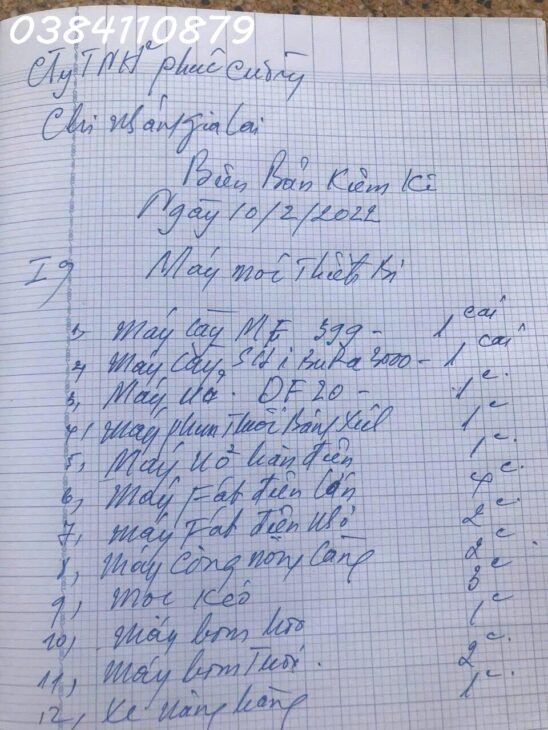 0384110879
Cty TNHH phúc cường
Chi nhánh gia lai
Biên Bản Kiểm Kê
Ngày 10/2/2022
I, Máy móc Thiết bị
1, Máy cày MF 399 - 1 cái
2, Máy cày, 3000 - 1 cái
3, Máy DF 20 - 1 c
4, Máy phun Thuốc 1 c
5, Máy nổ hàn điện 1 c
6, Máy Fát điện lớn 4 c
7, Máy Fát điện nhỏ 2 c
8, Máy Công nông Càng 2 c
9, Móc Kéo 3 c
10, Máy bơm 1 c
11, Máy bơm 2 c
12, Xe nâng hàng 1 c